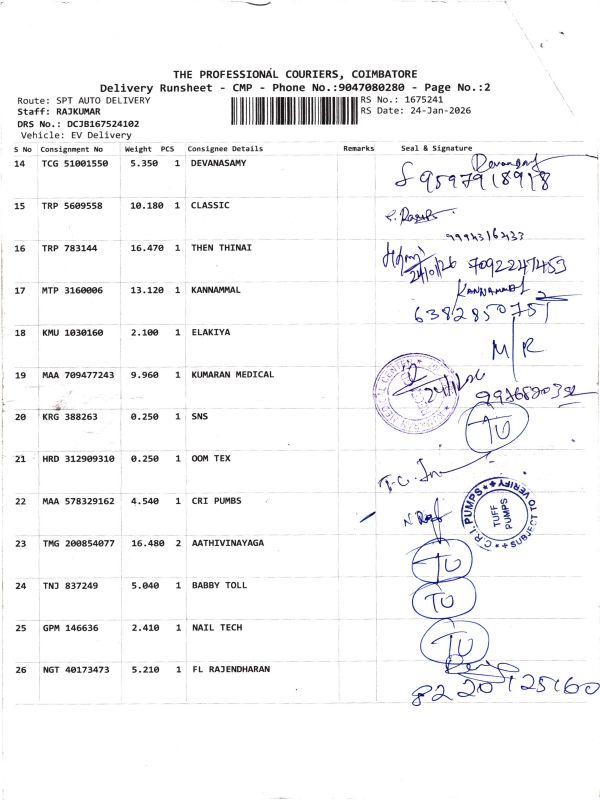 THE PROFESSIONAL COURIERS, COIMBATORE
Delivery Runsheet - CMP - Phone No.:9047080280 - Page No.:2
Route: SPT AUTO DELIVERY RS No.: 1675241
Staff: RAJKUMAR RS Date: 24-Jan-2026
DRS No.: DCJB167524102
Vehicle: EV Delivery
S No Consignment No Weight PCS Consignee Details Remarks Seal & Signature
14 TCG 51001550 5.350 1 DEVANASAMY
9597918918
15 TRP 5609558 10.180 1 CLASSIC
9994316433
16 TRP 783144 16.470 1 THEN THINAI
24/01/26 7092247453
17 MTP 3160006 13.120 1 KANNAMMAL KANNAMMAL
6382850751
18 KMU 1030160 2.100 1 ELAKIYA
M/R
19 MAA 709477243 9.960 1 KUMARAN MEDICAL
20 KRG 388263 0.250 1 SNS TU
21 HRD 312909310 0.250 1 OOM TEX
22 MAA 578329162 4.540 1 CRI PUMBS
C.R.I. PUMPS
TUFF
PUMPS
SUBJECT TO VERIFY
23 TMG 200854077 16.480 2 AATHIVINAYAGA TU
24 TNJ 837249 5.040 1 BABBY TOLL TU
25 GPM 146636 2.410 1 NAIL TECH TU
26 NGT 40173473 5.210 1 FL RAJENDHARAN
8220125160